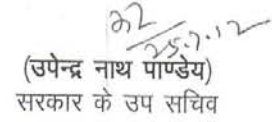 25.7.12
(उपेन्द्र नाथ पाण्डेय)
सरकार के उप सचिव